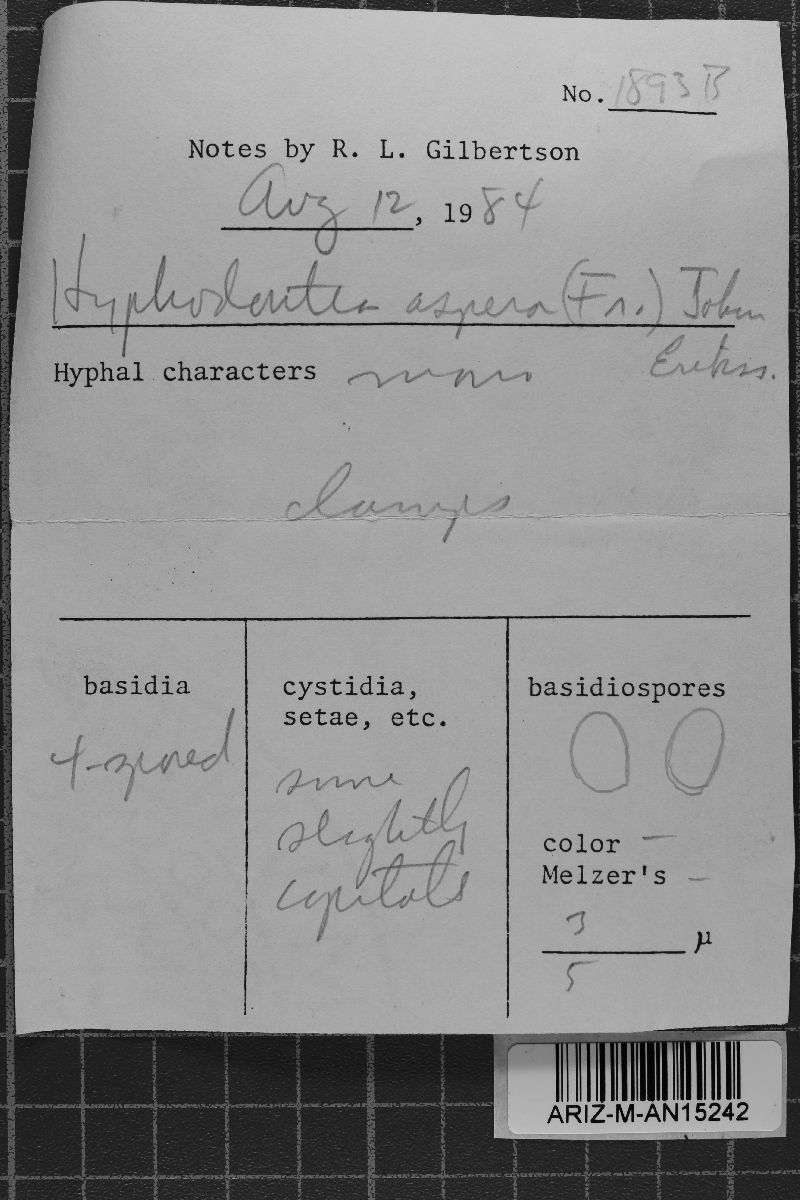 No. 1893 B
Notes by R. L. Gilbertson
Aug 12, 1984
Hyphodontia aspera (Fr.) John
Erikss.
Hyphal characters mono
clamps
basidia
4-spored
cystidia,
setae, etc.
some
slightly
capitate
basidiospores
color –
Melzer's –
3 µ
5
ARIZ-M-AN15242